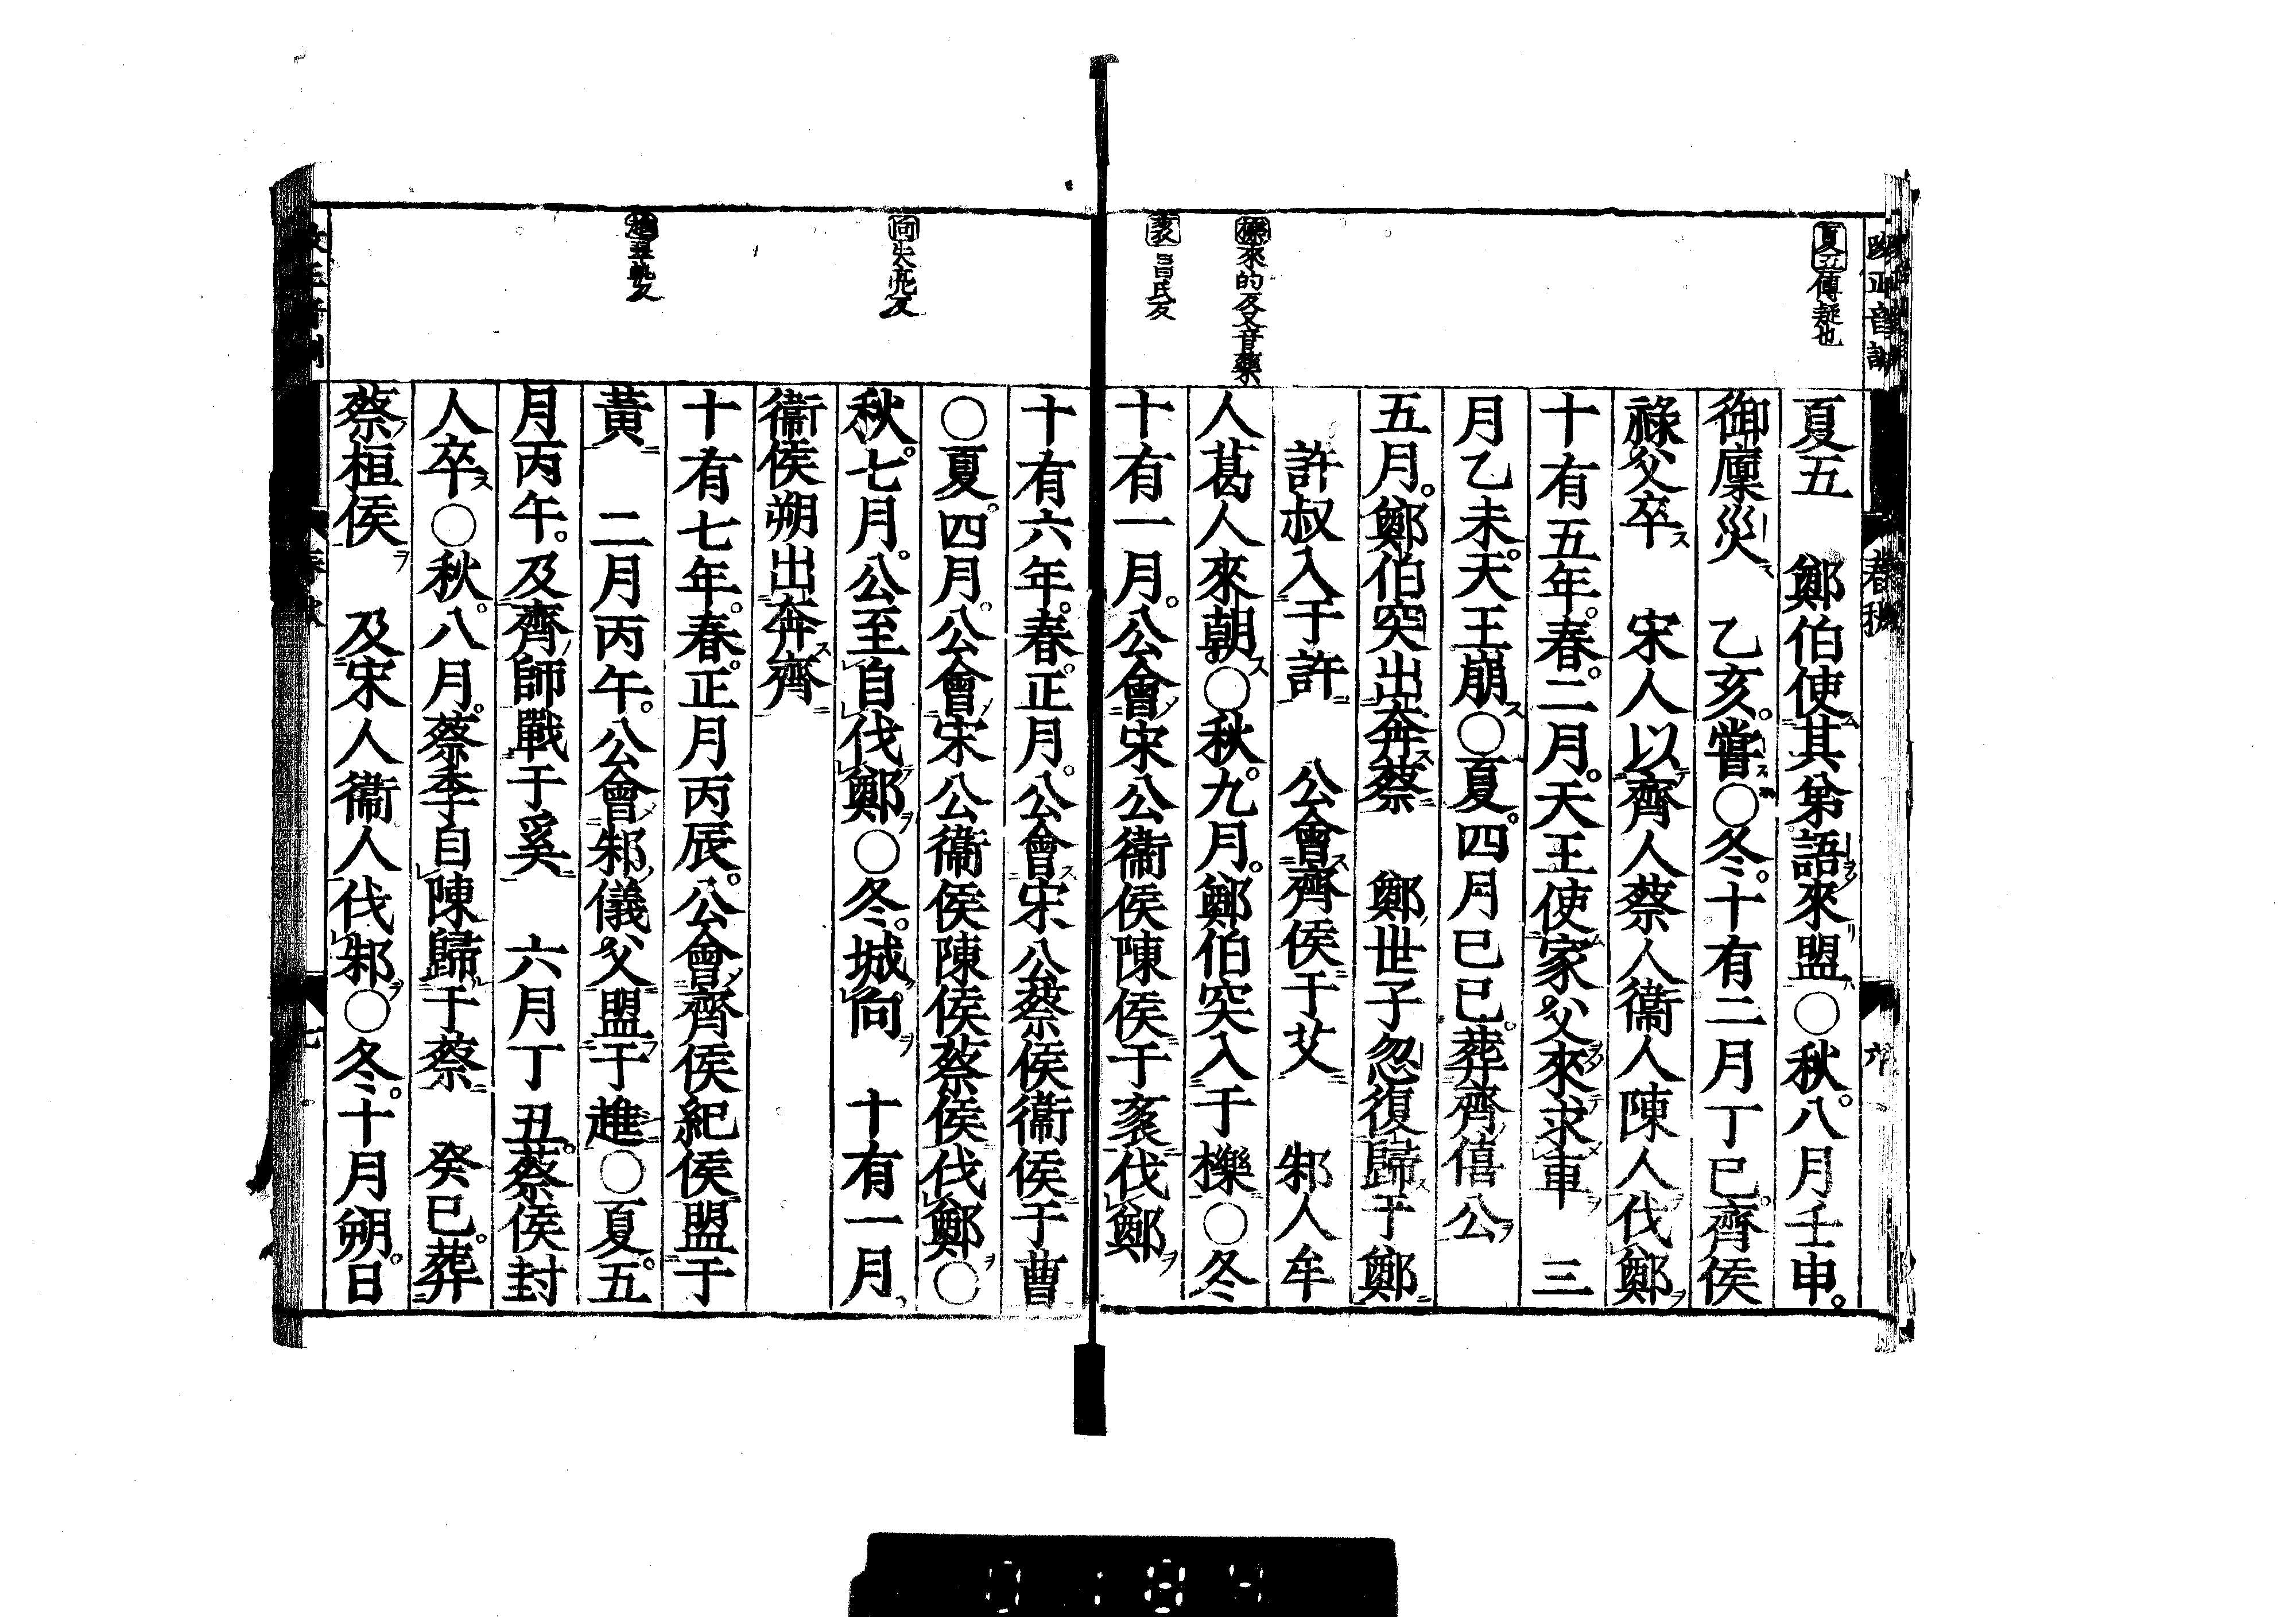 改正音訓
春秋
六
夏五傳疑也
櫟來的反又音藥
袲昌氏反
夏五　鄭伯使其弟語來盟○秋。八月壬申。
御廩災　乙亥。嘗○冬。十有二月丁巳。齊侯
祿父卒　宋人以齊人蔡人衞人陳人伐鄭
十有五年。春。二月。天王使家父來求車　三
月乙未。天王崩○夏。四月己巳。葬齊僖公
五月。鄭伯突出奔蔡　鄭世子忽復歸于鄭
許叔入于許　公會齊侯于艾　邾人牟
人葛人來朝○秋。九月。鄭伯突入于櫟○冬
十有一月。公會宋公衞侯陳侯于袲伐鄭
向失亮反
趡翠軌反
十有六年。春。正月。公會宋公蔡侯衞侯于曹
○夏。四月。公會宋公衞侯陳侯蔡侯伐鄭○
秋。七月。公至自伐鄭○冬。城向　十有一月
衞侯朔出奔齊
十有七年。春。正月丙辰。公會齊侯紀侯盟于
黃　二月丙午。公會邾儀父盟于趡○夏。五
月丙午。及齊師戰于奚　六月丁丑。蔡侯封
人卒○秋。八月。蔡季自陳歸于蔡　癸巳。葬
蔡桓侯　及宋人衞人伐邾○冬。十月朔。日
春秋
七